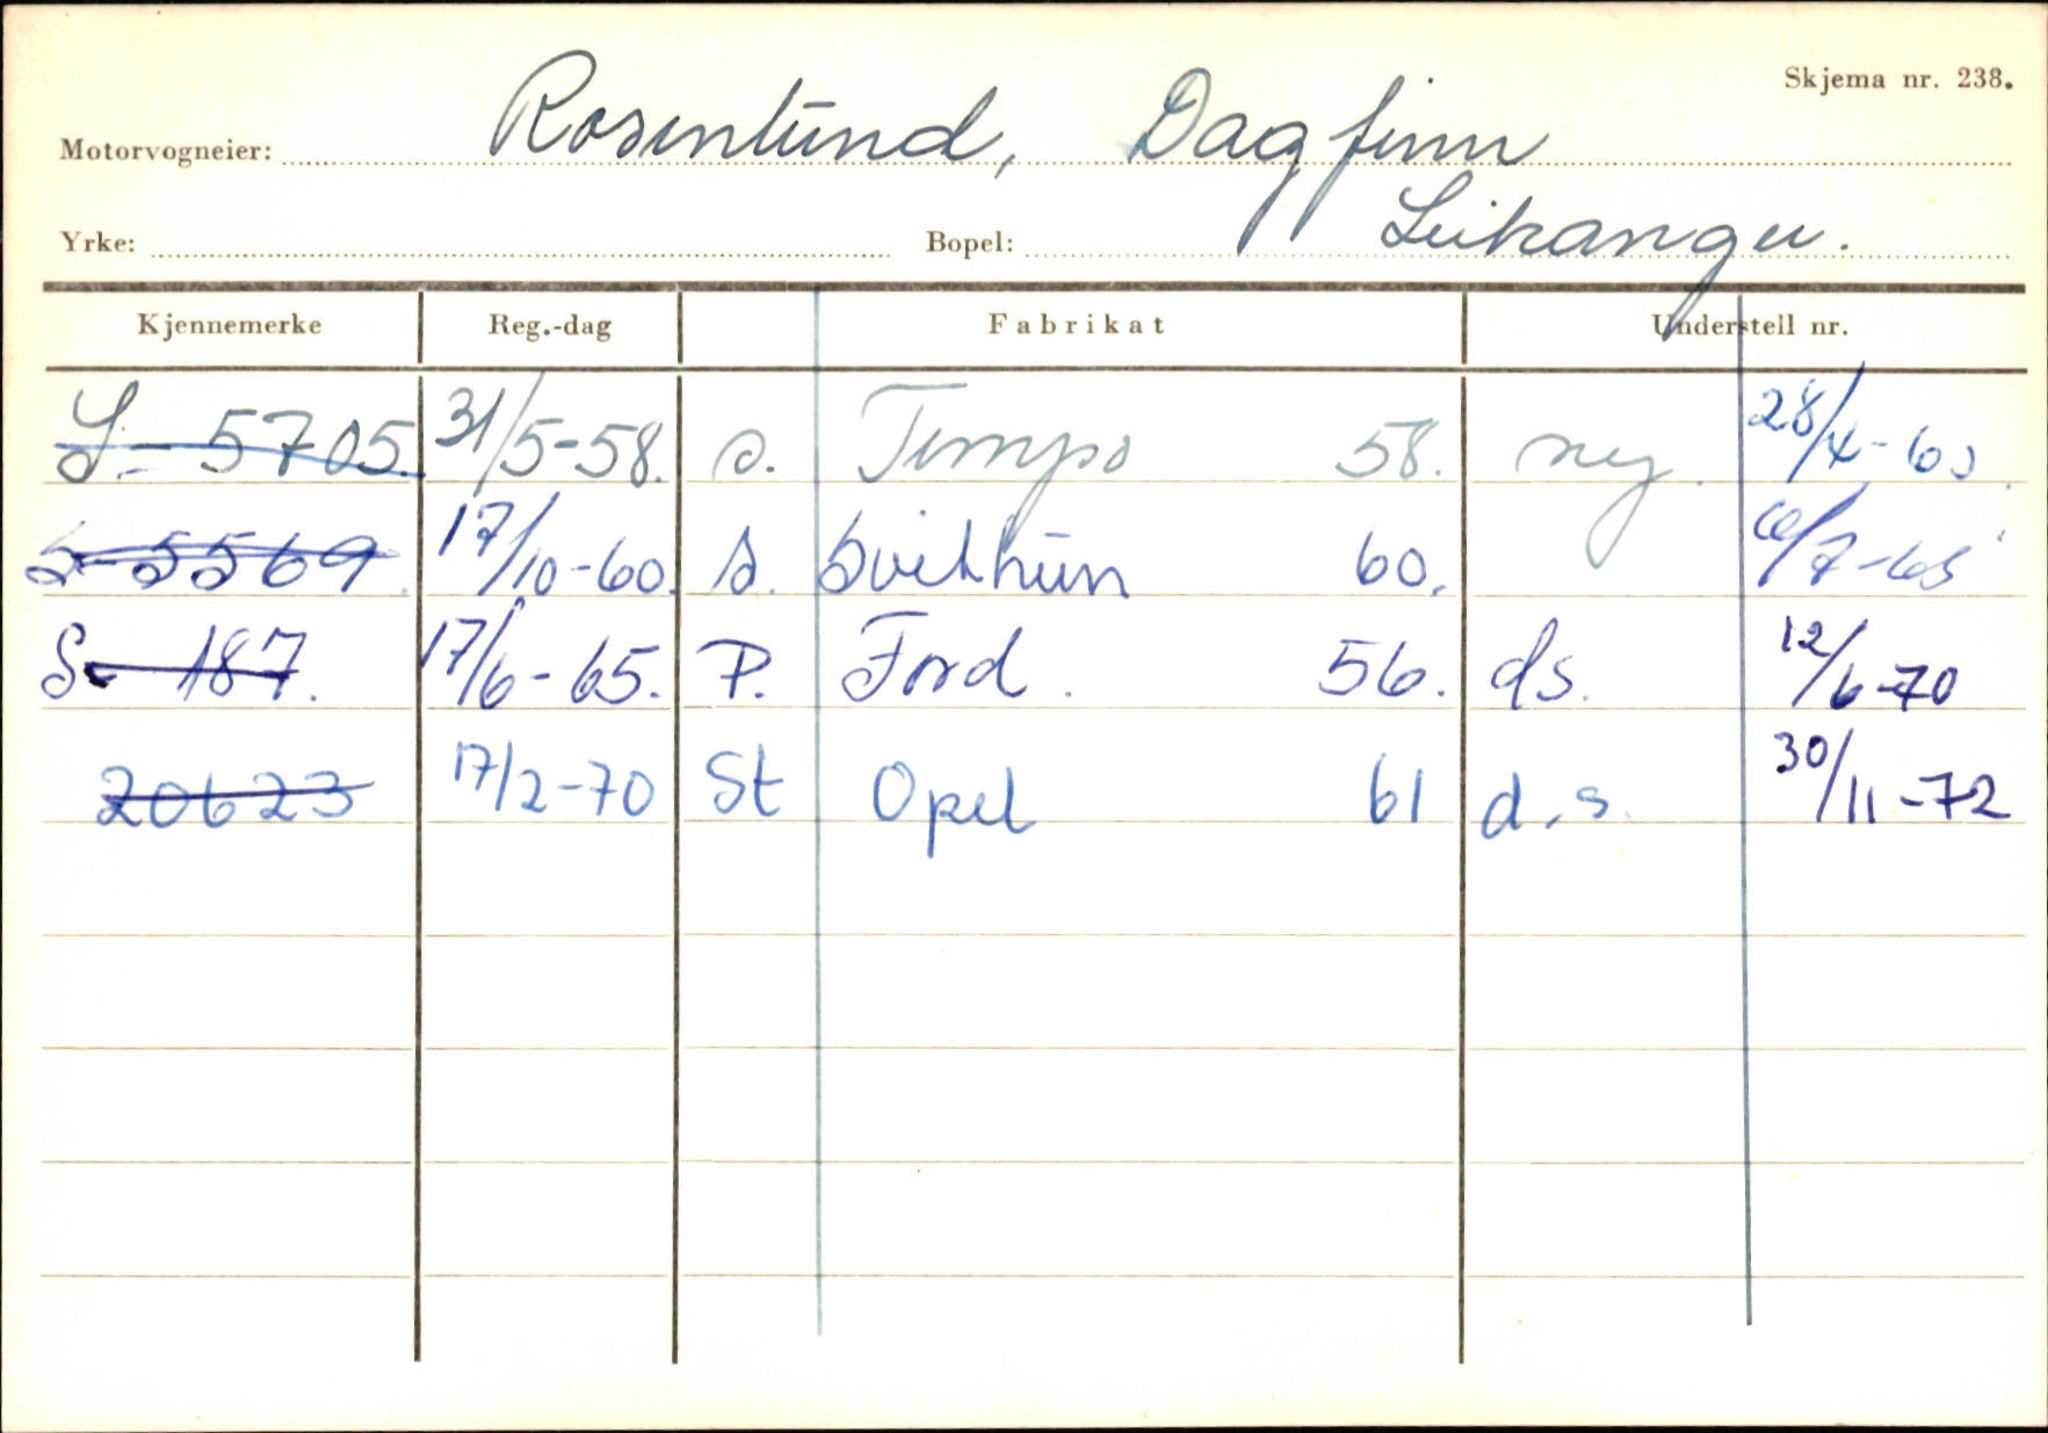 Skjema nr. 238.
Motorvogneier: Rosenlund, Dagfinn
Yrke: Bopel: Leikanger.
Kjennemerke Reg.-dag Fabrikat Understell nr.
S-5705. 31/5-58. s. Tempo 58. ny. 28/4-60
S-5569. 17/10-60. s. Svithun 60. 6/7-65
S-187. 17/6-65. P. Ford. 56. ds. 12/6-70
20623 17/2-70 St Opel 61 d.s. 30/11-72